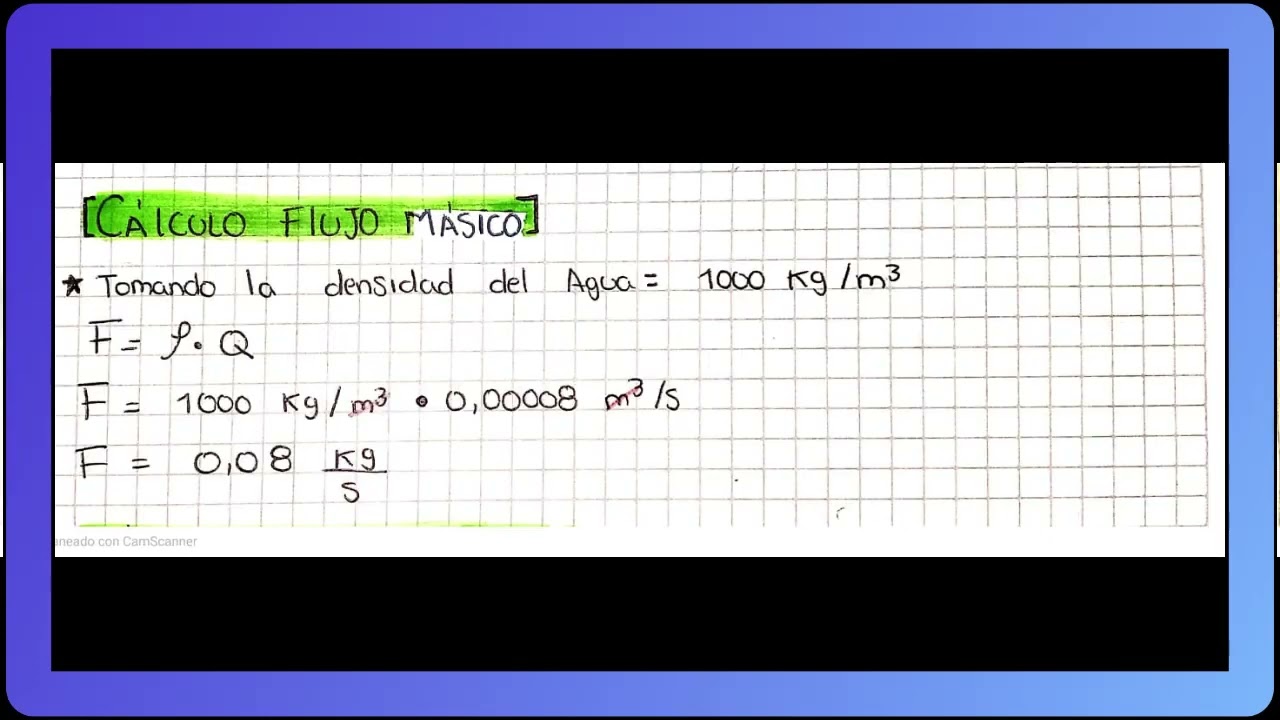 [CÁLCULO FLUJO MÁSICO]
★ Tomando la densidad del Agua = 1000 Kg/m³
F = ρ • Q
F = 1000 Kg/m³ • 0,00008 m³/s
F = 0,08 Kg/s
aneado con CamScanner